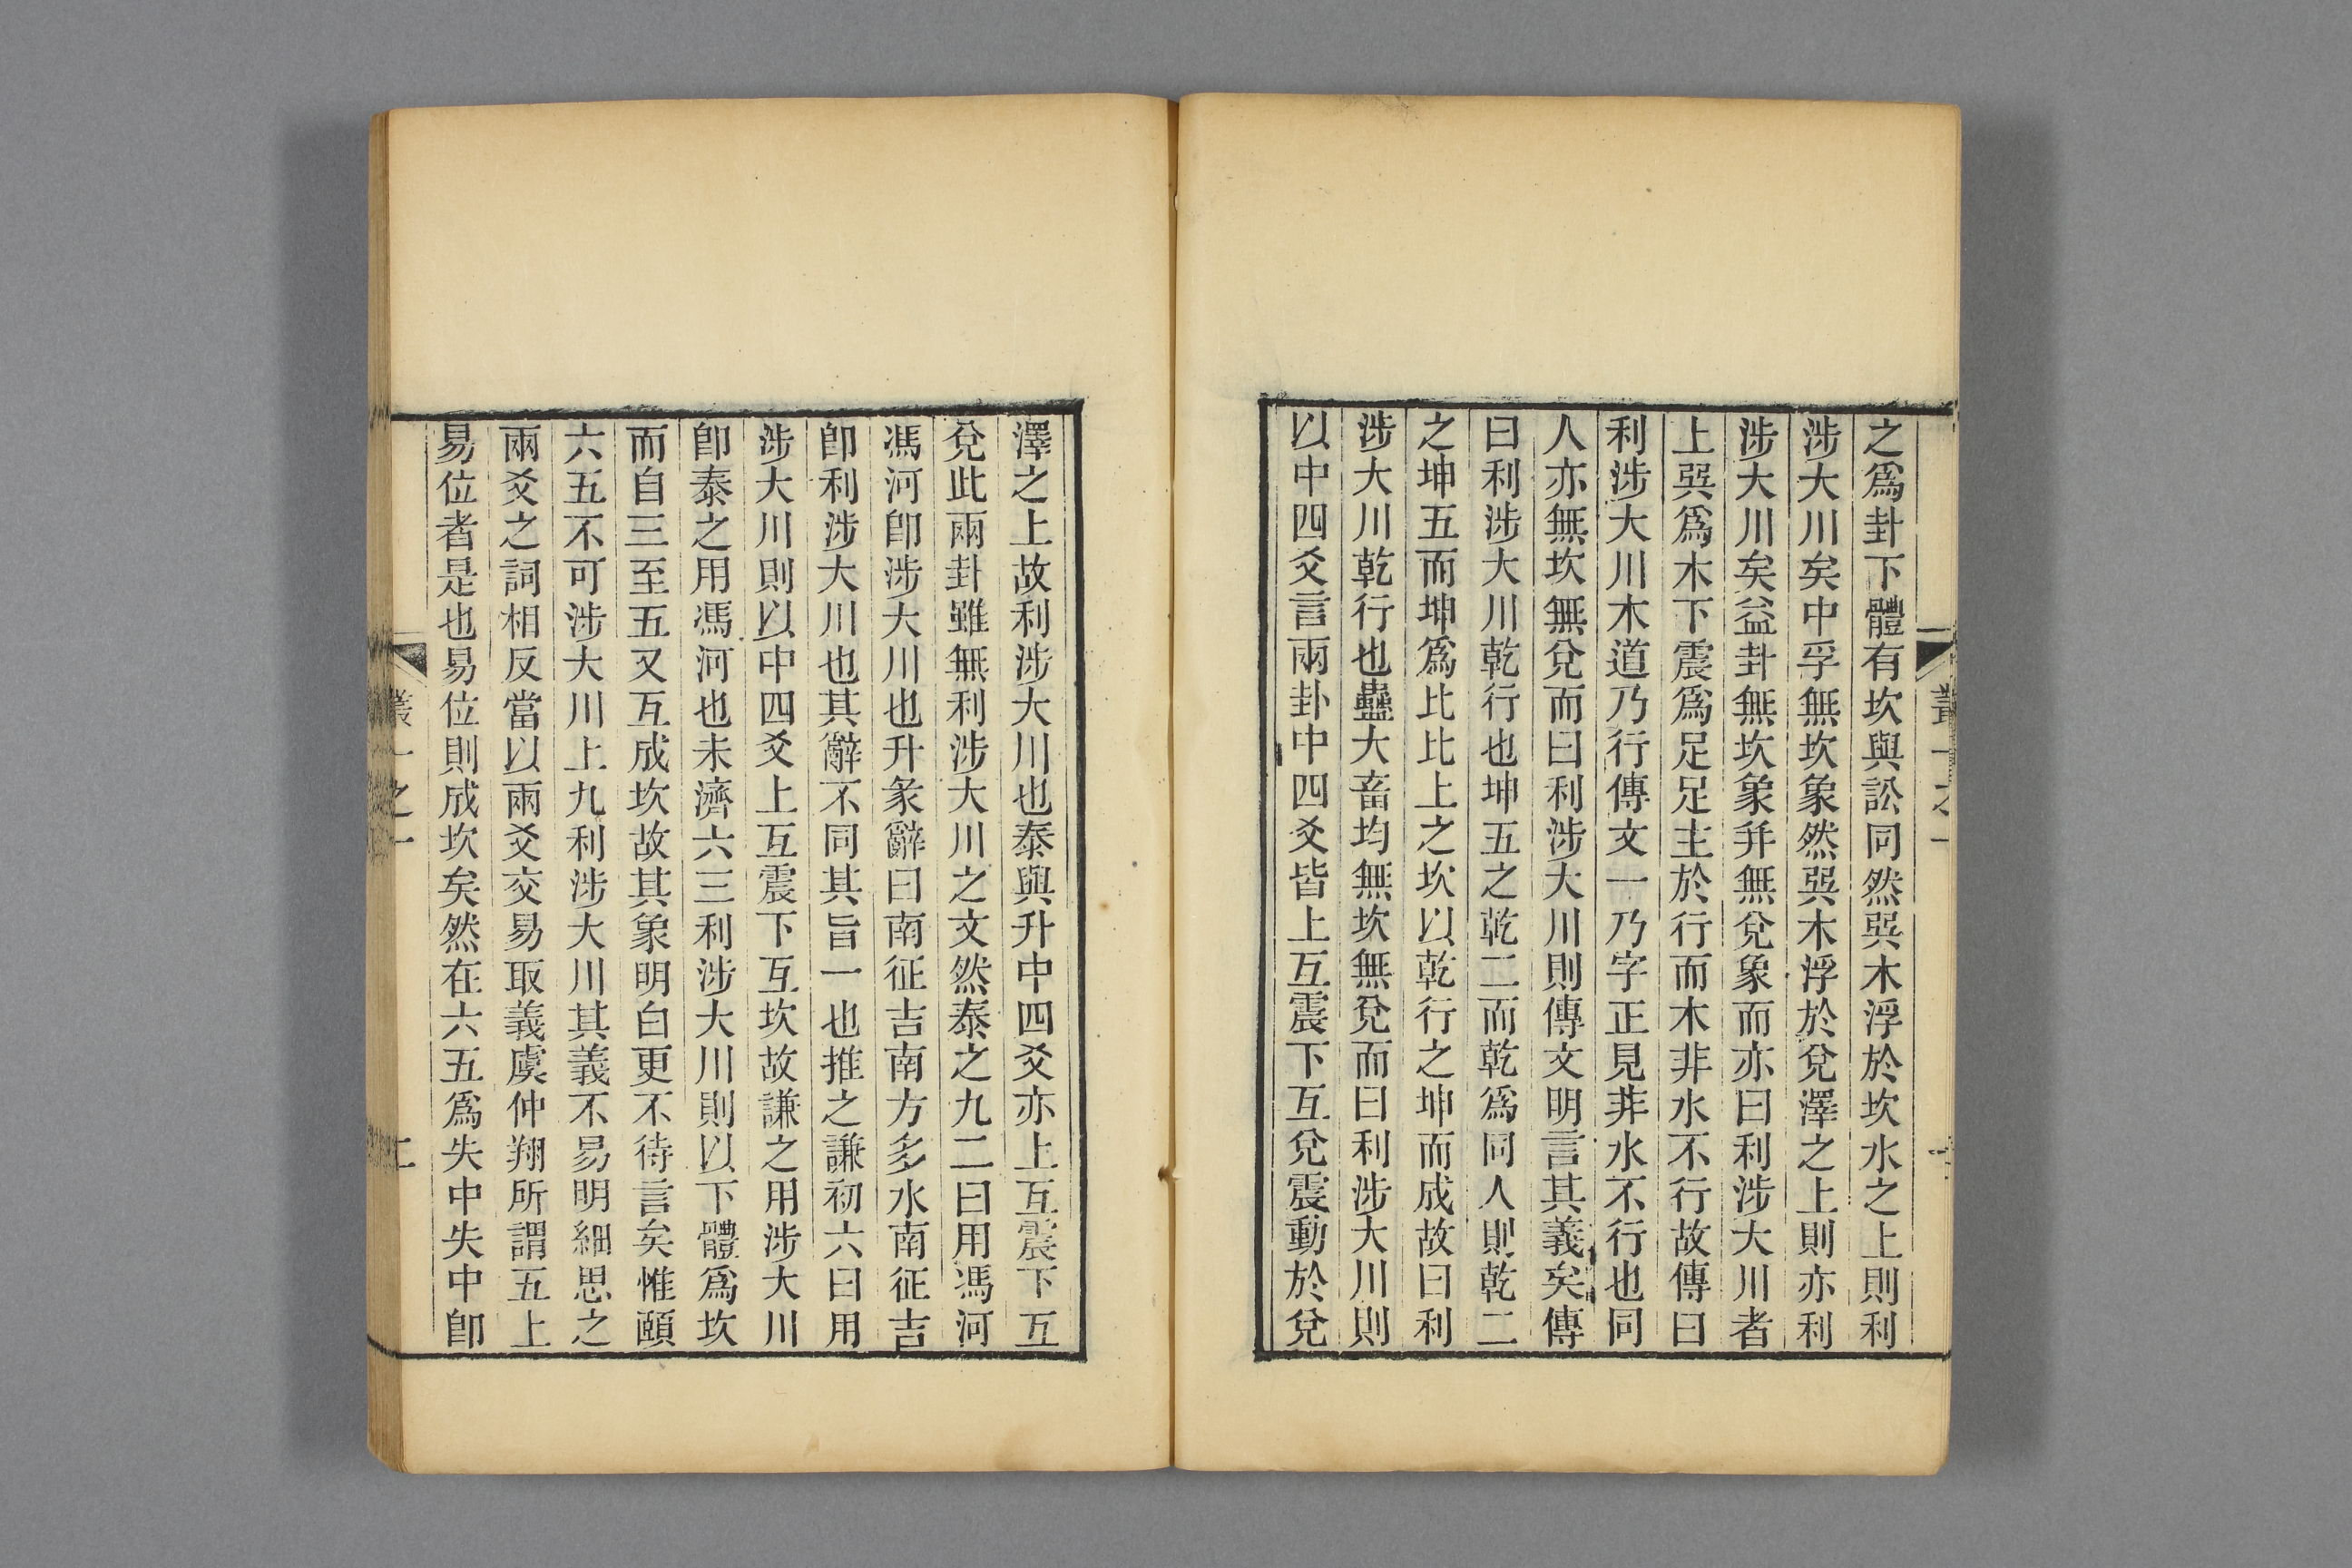 之爲卦下體有坎與訟同然巽木浮於坎水之上則利
涉大川矣中孚無坎象然巽木浮於兌澤之上則亦利
涉大川矣益卦無坎象幷無兌象而亦曰利涉大川者
上巽爲木下震爲足足主於行而木非水不行故傳曰
利涉大川木道乃行傳文一乃字正見非水不行也同
人亦無坎無兌而曰利涉大川則傳文明言其義矣傳
曰利涉大川乾行也坤五之乾二而乾爲同人則乾二
之坤五而坤爲比比上之坎以乾行之坤而成故曰利
涉大川乾行也蠱大畜均無坎無兌而曰利涉大川則
以中四爻言兩卦中四爻皆上互震下互兌震動於兌
澤之上故利涉大川也泰與升中四爻亦上互震下互
兌此兩卦雖無利涉大川之文然泰之九二曰用馮河
馮河卽涉大川也升彖辭曰南征吉南方多水南征吉
卽利涉大川也其辭不同其旨一也推之謙初六曰用
涉大川則以中四爻上互震下互坎故謙之用涉大川
卽泰之用馮河也未濟六三利涉大川則以下體爲坎
而自三至五又互成坎故其象明白更不待言矣惟頤
六五不可涉大川上九利涉大川其義不易明細思之
兩爻之詞相反當以兩爻交易取義虞仲翔所謂五上
易位者是也易位則成坎矣然在六五爲失中失中卽
叢一之一
二